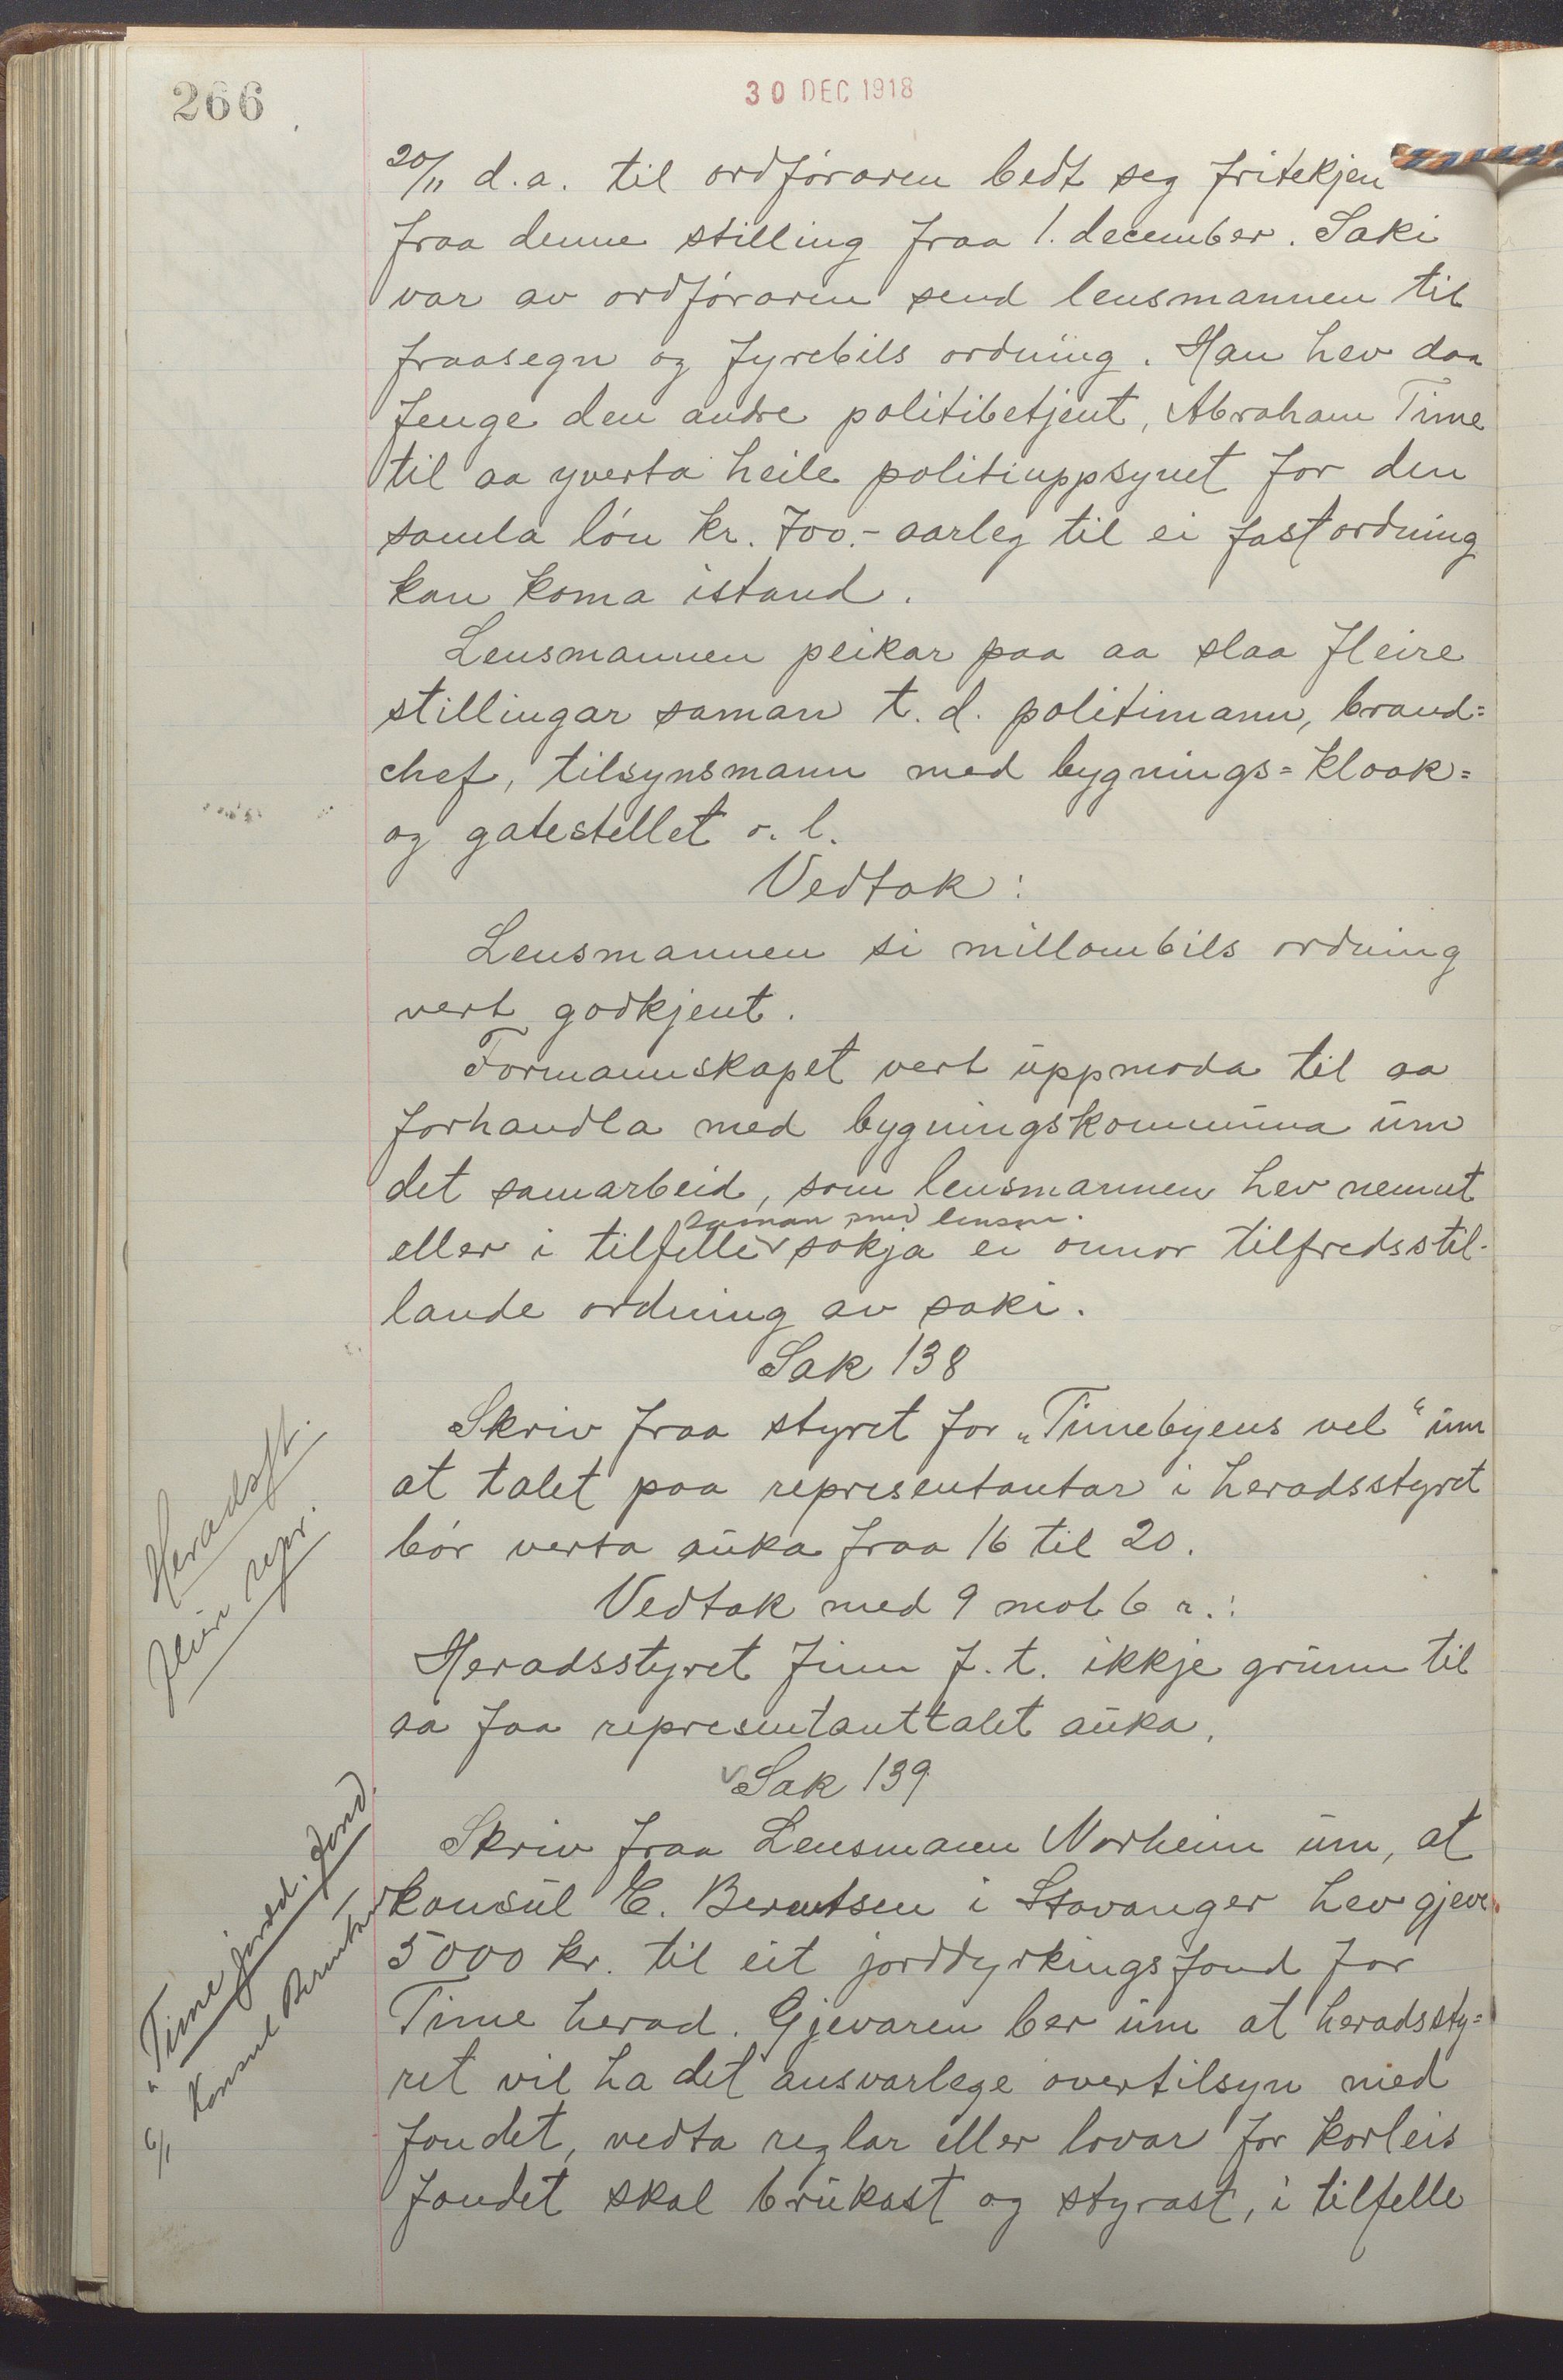 266
30 DEC 1918
20/11 d.a. til ordføraren bedt seg fritekjen
fraa denne stilling fraa 1. december. Saki
var av ordføraren send lensmannen til
fraasegn og fyrebils ordning. Han hev daa
fenge den andre politibetjent, Abraham Time
til aa yverta heile politiuppsynet for den
samla løn kr. 700.- aarleg til ei fast ordning
kan koma istand.
Lensmannen peikar paa aa slaa fleire
stillingar saman t. d. politimann, brand=
chef, tilsynsmann med bygnings= kloak=
og gatestellet o. l.
Vedtak:
Lensmannen si millombils ordning
vert godkjent.
Formannskapet vert uppmoda til aa
forhandla med bygningskommuna um
det samarbeid, som lensmannen hev nemnt
saman med lensm.
eller i tilfelle søkja ei onnor tilfredsstil-
lande ordning av saki.
Sak 138
Skriv fraa styret for „Timebyens vel“ um
at talet paa representantar i heradsstyret
bør verta auka fraa 16 til 20.
Vedtak med 9 mot 6 r.:
Heradsstyret finn f. t. ikkje grunn til
aa faa representanttalet auka.
Sak 139
Skriv fraa Lensmann Norheim um, at
konsul E. Berentsen i Stavanger hev gjeve
5000 kr. til eit jorddyrkingsfond for
Time herad. Gjevaren ber um at heradssty=
ret vil ha det ansvarlege overtilsyn med
fondet, vedta reglar eller lovar for korleis
fondet skal brukast og styrast, i tilfelle
Heradsst.
fleir repr.
Time jordd. fond
Konsul Berentsen
6/1